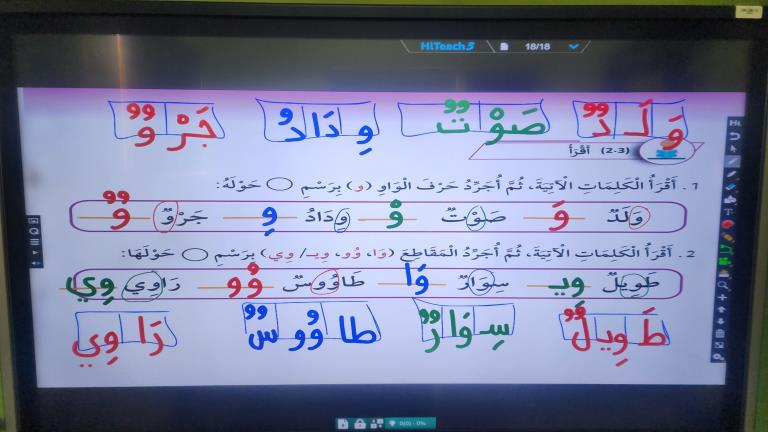 HiTeach5 18/18
وَلَدٌ صَوْتٌ وِدَادُ جَرْوٌ
(2-3) أَقْرَأُ
1. أَقْرَأُ الْكَلِمَاتِ الْآتِيَةَ، ثُمَّ أُجَرِّدُ حَرْفَ الْوَاوِ (و) بِرَسْمِ ◯ حَوْلَهُ:
وَلَدٌ وَ صَوْتٌ وْ وِدَادُ وِ جَرْوٌ وٌ
2. أَقْرَأُ الْكَلِمَاتِ الْآتِيَةَ، ثُمَّ أُجَرِّدُ الْمَقَاطِعَ (وَا، وُو، وِيـ/ وِي) بِرَسْمِ ◯ حَوْلَهَا:
طَوِيلٌ وِيـ سِوَارٌ وَا طَاوُوسٌ وُو رَاوِي وِي
طَوِيلٌ سِوَارٌ طاوُوسٌ رَاوِي
0(0) - 0%